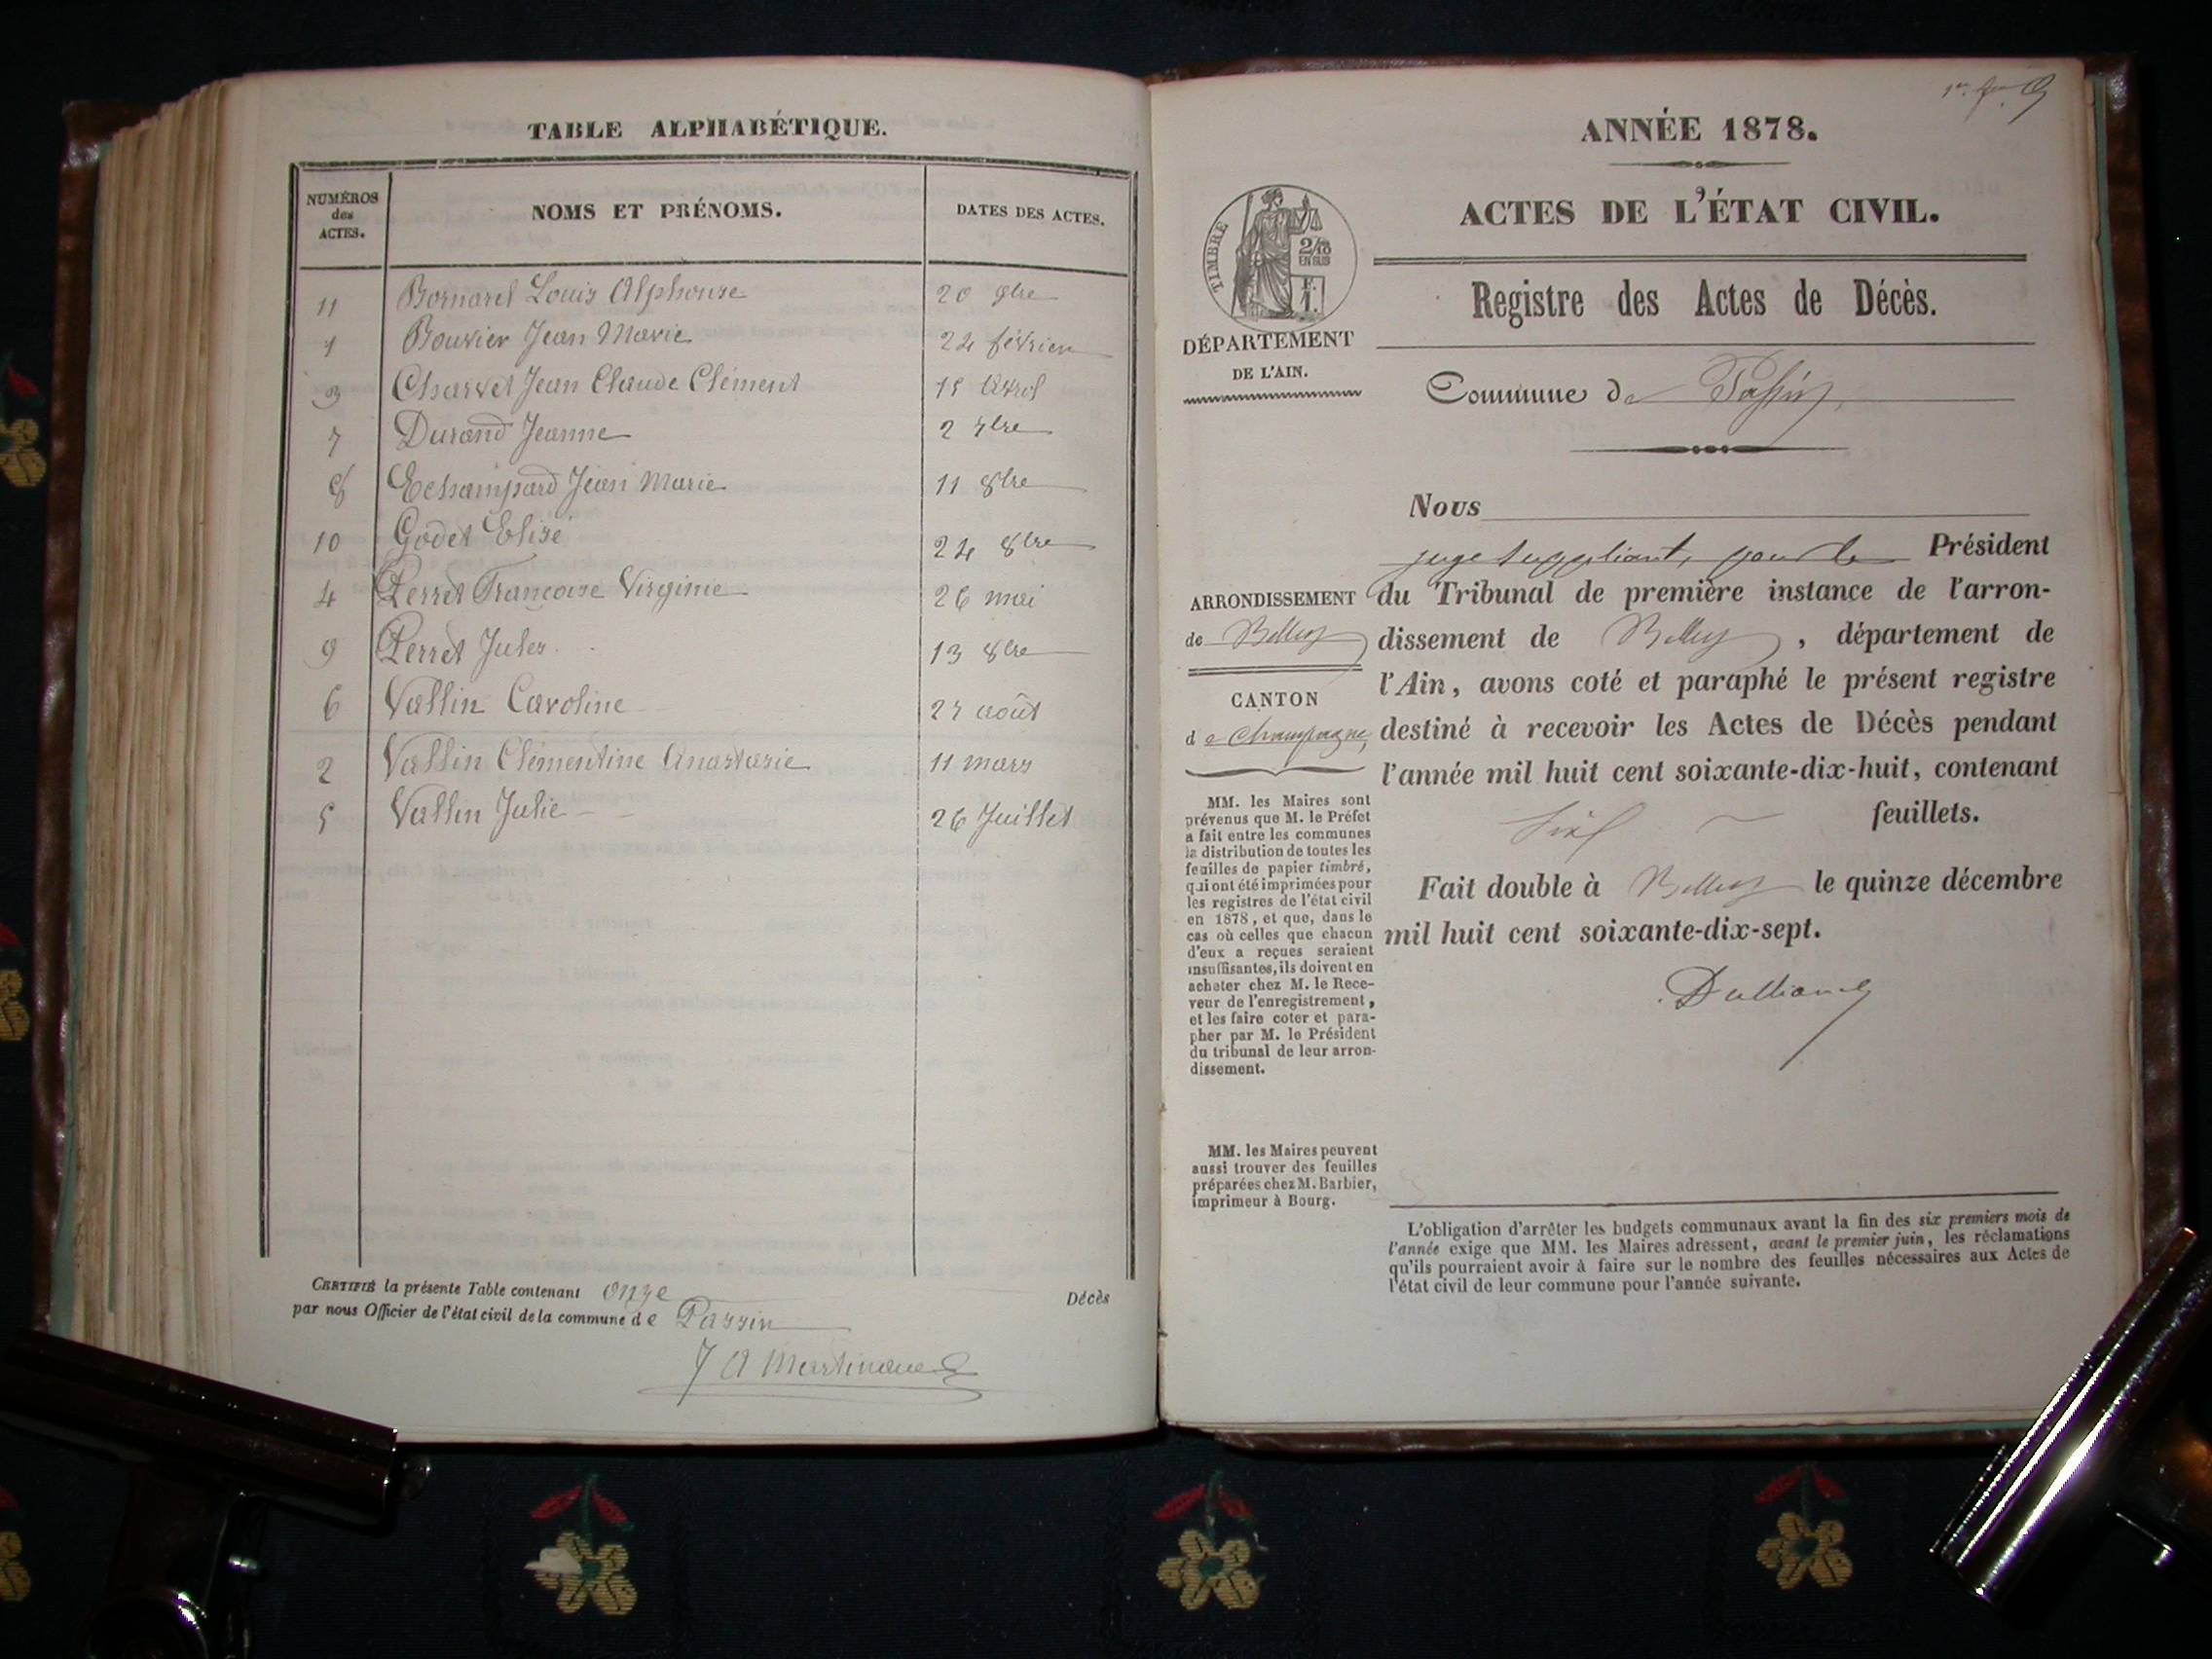 TABLE ALPHABÉTIQUE.
NUMÉROS des ACTES. NOMS ET PRÉNOMS. DATES DES ACTES.
11 Bornarel Louis Alphonse 20 9bre
1 Bouvier Jean Marie 24 février
3 Charvet Jean Claude Clément 15 Avril
7 Durand Jeanne 2 7bre
8 Echampard Jean Marie 11 8bre
10 Godet Elisé 24 8bre
4 Perret Françoise Virginie 26 mai
9 Perret Jules 13 8bre
6 Vallin Caroline 27 août
2 Vallin Clémentine Anastasie 11 mars
5 Vallin Julie 26 Juillet
CERTIFIÉ la présente Table contenant Onze Décès
par nous Officier de l'état civil de la commune de Passin
J A Martinaud
ANNÉE 1878.
ACTES DE L'ÉTAT CIVIL.
TIMBRE
2/10
EN SUS
F.
1.
DÉPARTEMENT
DE L'AIN.
Registre des Actes de Décès.
Commune de Passin
ARRONDISSEMENT
de Belley
CANTON
de Champagne
MM. les Maires sont
prévenus que M. le Préfet
a fait entre les communes
la distribution de toutes les
feuilles de papier timbré,
qui ont été imprimées pour
les registres de l'état civil
en 1878, et que, dans le
cas où celles que chacun
d'eux a reçues seraient
insuffisantes, ils doivent en
acheter chez M. le Rece-
veur de l'enregistrement,
et les faire coter et para-
pher par M. le Président
du tribunal de leur arron-
dissement.
MM. les Maires peuvent
aussi trouver des feuilles
préparées chez M. Barbier,
imprimeur à Bourg.
Nous
juge suppléant, pour le Président
du Tribunal de première instance de l'arron-
dissement de Belley, département de
l'Ain, avons coté et paraphé le présent registre
destiné à recevoir les Actes de Décès pendant
l'année mil huit cent soixante-dix-huit, contenant
feuillets.
Fait double à Belley le quinze décembre
mil huit cent soixante-dix-sept.
L'obligation d'arrêter les budgets communaux avant la fin des six premiers mois de
l'année exige que MM. les Maires adressent, avant le premier juin, les réclamations
qu'ils pourraient avoir à faire sur le nombre des feuilles nécessaires aux Actes de
l'état civil de leur commune pour l'année suivante.